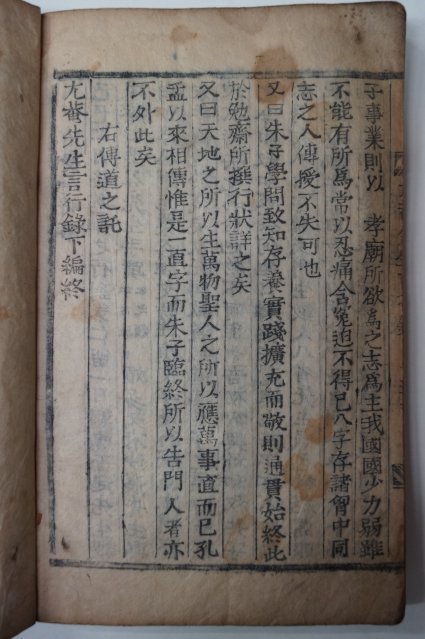 子事業則以 孝廟所欲為之志為主我國國少力弱雖
不能有所為常以忍痛含冤迫不得已八字存諸胷中同
志之人傳授不失可也
又曰朱子學問致知存養實踐擴充而敬則通貫始終此
於勉齋所撰行狀詳之矣
又曰天地之所以生萬物聖人之所以應萬事直而已孔
孟以來相傳惟是一直字而朱子臨終所以告門人者亦
不外此矣
右傳道之託
尤菴先生言行錄下編終